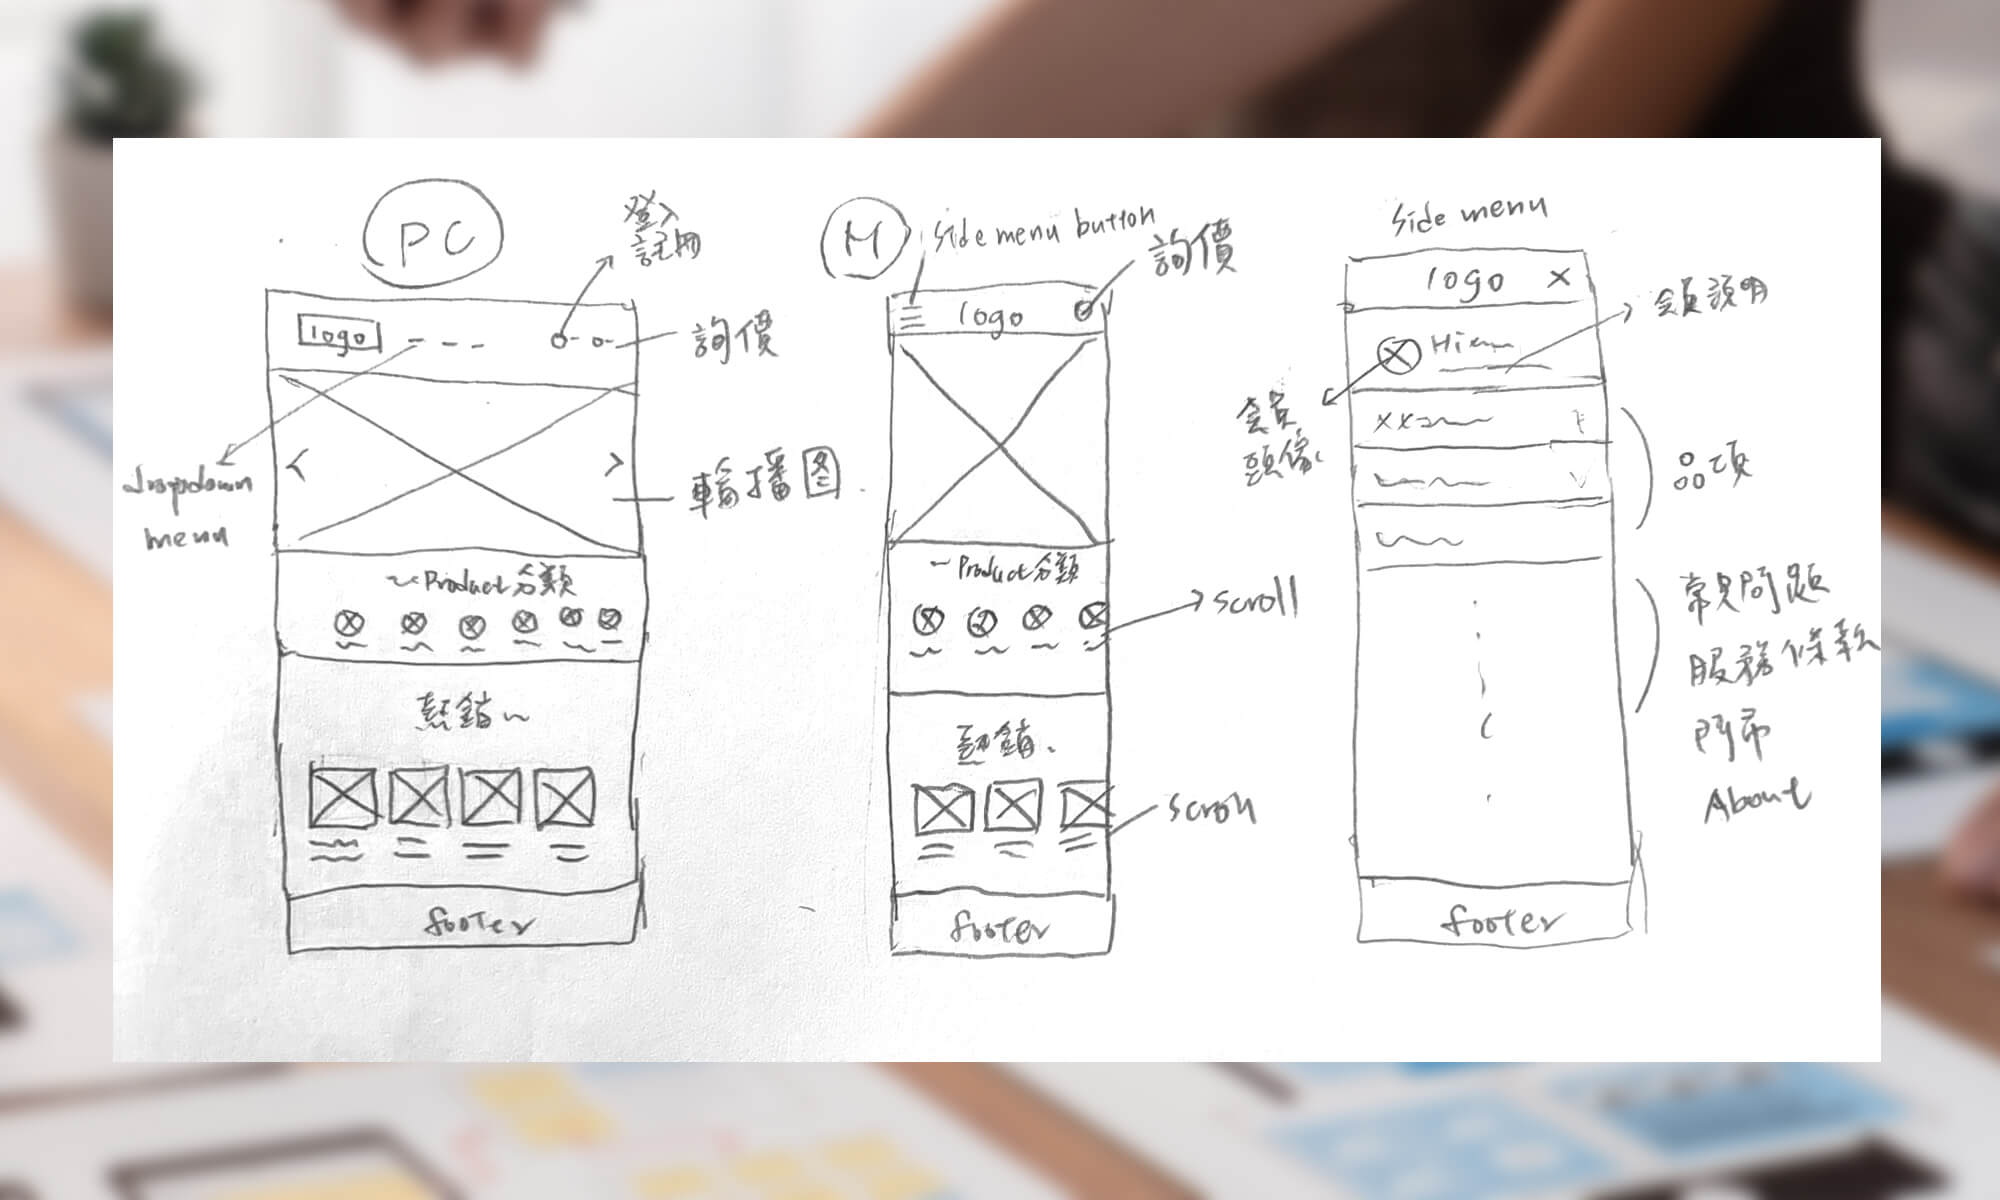 PC
登入
註冊
logo
詢價
dropdown
menu
輪播图
Product分類
熱銷
footer
M
side menu button
詢價
logo
Product分類
scroll
熱銷
scroll
footer
side menu
logo X
Hi
会員說明
会員
頭像
xx
品項
常見問題
服務條款
門市
About
footer